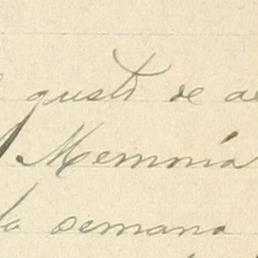 gusto de
Memoria
la semana